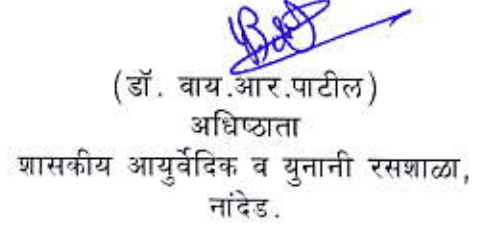 (डॉ. वाय.आर.पाटील)
अधिष्ठाता
शासकीय आयुर्वेदिक व युनानी रसशाळा,
नांदेड.